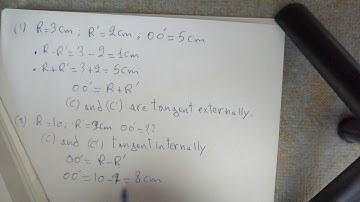 (1) R=3cm ; R'=2cm ; OO'=5cm
• R-R'=3-2=1cm
• R+R'=3+2=5cm
OO'=R+R'
(C) and (C') are tangent externally.
(2) R=10, R'= cm OO'=??
(C) and (C') tangent internally
OO'=R-R'
OO'=10-2=8cm